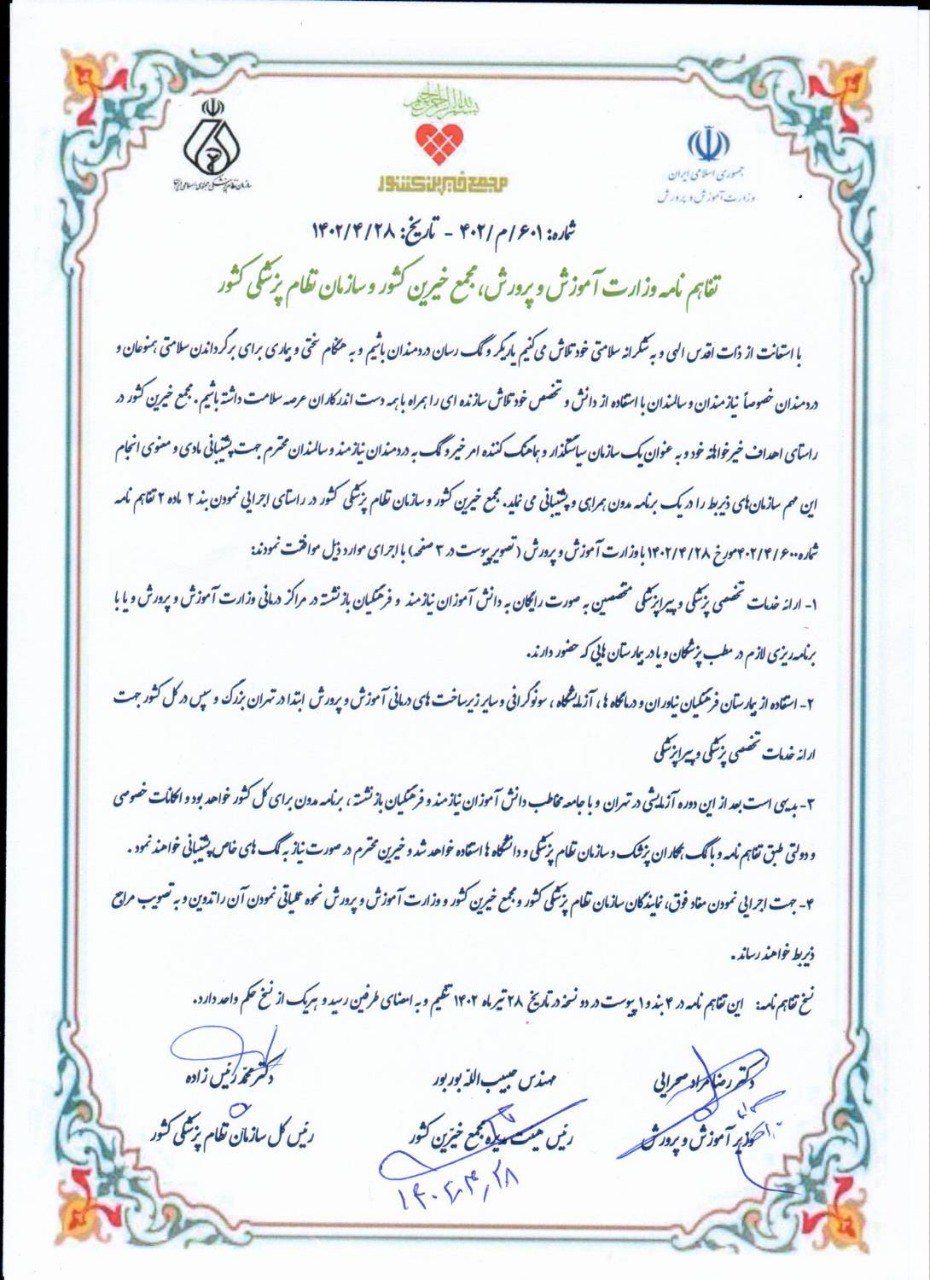 بسم الله الرحمن الرحیم
جمهوری اسلامی ایران
وزارت آموزش و پرورش
مجمع خیرین کشور
سازمان نظام پزشکی جمهوری اسلامی ایران
شماره: ۶۰۱/م/۴۰۲ - تاریخ: ۱۴۰۲/۴/۲۸
تفاهم نامه وزارت آموزش و پرورش، مجمع خیرین کشور و سازمان نظام پزشکی کشور
با استعانت از ذات اقدس الهی و به شکرانه سلامتی خود تلاش می کنیم یاریگر و کمک رسان دردمندان باشیم و به هنگام سختی و بیماری برای برگرداندن سلامتی همنوعان و
دردمندان خصوصاً نیازمندان و سالمندان با استفاده از دانش و تخصص خود تلاش سازنده ای را همراه با همه دست اندرکاران عرصه سلامت داشته باشیم. مجمع خیرین کشور در
راستای اهداف خیرخواهانه خود و به عنوان یک سازمان سیاستگذار و هماهنگ کننده امر خیر و کمک به دردمندان نیازمند و سالمندان محترم جهت پشتیبانی مادی و معنوی انجام
این مهم سازمان‌های ذیربط را در یک برنامه مدون همراهی و پشتیبانی می نماید. مجمع خیرین کشور و سازمان نظام پزشکی کشور در راستای اجرایی نمودن بند ۲ ماده ۲ تفاهم نامه
شماره ۴۰۲/۴/۶۰۰ مورخ ۱۴۰۲/۴/۲۸ با وزارت آموزش و پرورش (تصویر پیوست در ۳ صفحه) با اجرای موارد ذیل موافقت نمودند:
۱- ارائه خدمات تخصصی پزشکی و پیراپزشکی متخصصین به صورت رایگان به دانش آموزان نیازمند و فرهنگیان بازنشسته در مراکز درمانی وزارت آموزش و پرورش و یا با
برنامه ریزی لازم در مطب پزشکان و یا در بیمارستان هایی که حضور دارند.
۲- استفاده از بیمارستان فرهنگیان نیاوران و درمانگاه ها، آزمایشگاه، سونوگرافی و سایر زیرساخت های درمانی آموزش و پرورش ابتدا در تهران بزرگ و سپس در کل کشور جهت
ارائه خدمات تخصصی پزشکی و پیراپزشکی
۳- بدیهی است بعد از این دوره آزمایشی در تهران و با جامعه مخاطب دانش آموزان نیازمند و فرهنگیان بازنشسته، برنامه مدون برای کل کشور خواهد بود و امکانات خصوصی
و دولتی طبق تفاهم نامه و با کمک همکاران پزشک و سازمان نظام پزشکی و دانشگاه ها استفاده خواهد شد و خیرین محترم در صورت نیاز به کمک های خاص پشتیبانی خواهند نمود.
۴- جهت اجرایی نمودن مفاد فوق، نمایندگان سازمان نظام پزشکی کشور و مجمع خیرین کشور و وزارت آموزش و پرورش نحوه عملیاتی نمودن آن را تدوین و به تصویب مراجع
ذیربط خواهند رساند.
نسخ تفاهم نامه: این تفاهم نامه در ۴ بند و ۱ پیوست در دو نسخه در تاریخ ۲۸ تیر ماه ۱۴۰۲ تنظیم و به امضای طرفین رسید و هریک از نسخ حکم واحد دارد.
دکتر رضا مراد صحرایی
مهندس حبیب الله بوربور
دکتر محمد رئیس زاده
وزیر آموزش و پرورش
رئیس هیئت مدیره مجمع خیرین کشور
رئیس کل سازمان نظام پزشکی کشور
۱۴۰۲،۴،۲۸